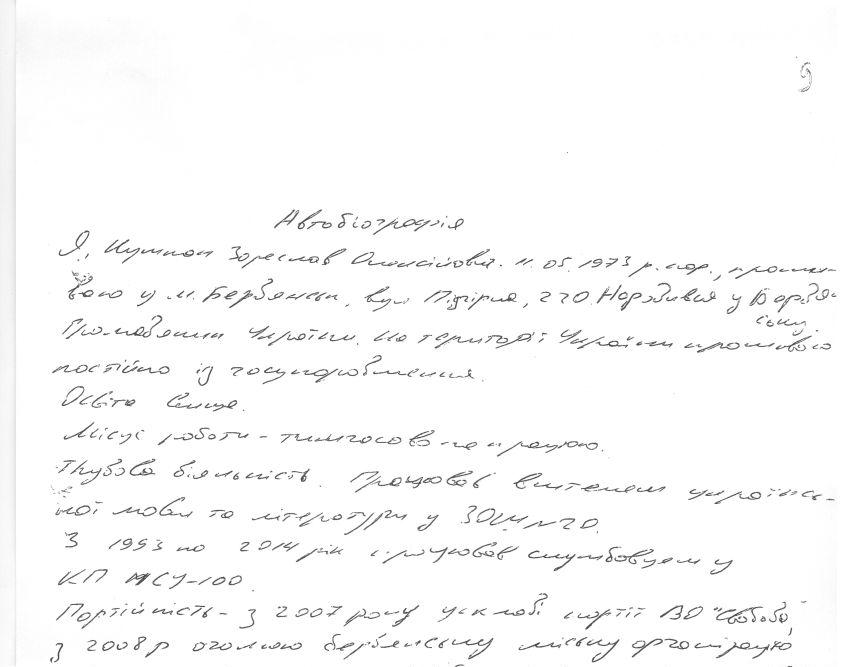 9
Автобіографія
Я, Зореслав Олексійович. 11.05.1973 р. нар., прожи-
ваю у м. Бердянськ, вул Підгірна, 220. Народився у Бердян-
ську.
Громадянин України. На території України проживаю
постійно із
Освіта вища.
Місце роботи - тимчасово не працюю.
Трудова діяльність. Працював вчителем українсь-
кої мови та літератури у ЗОШ №20.
З 1993 по 2014 рік працював службовцем у
КП МСУ-100.
Партійність - з 2007 року у складі партії ВО "Свобода",
з 2008 р очолюю бердянську міську організацію